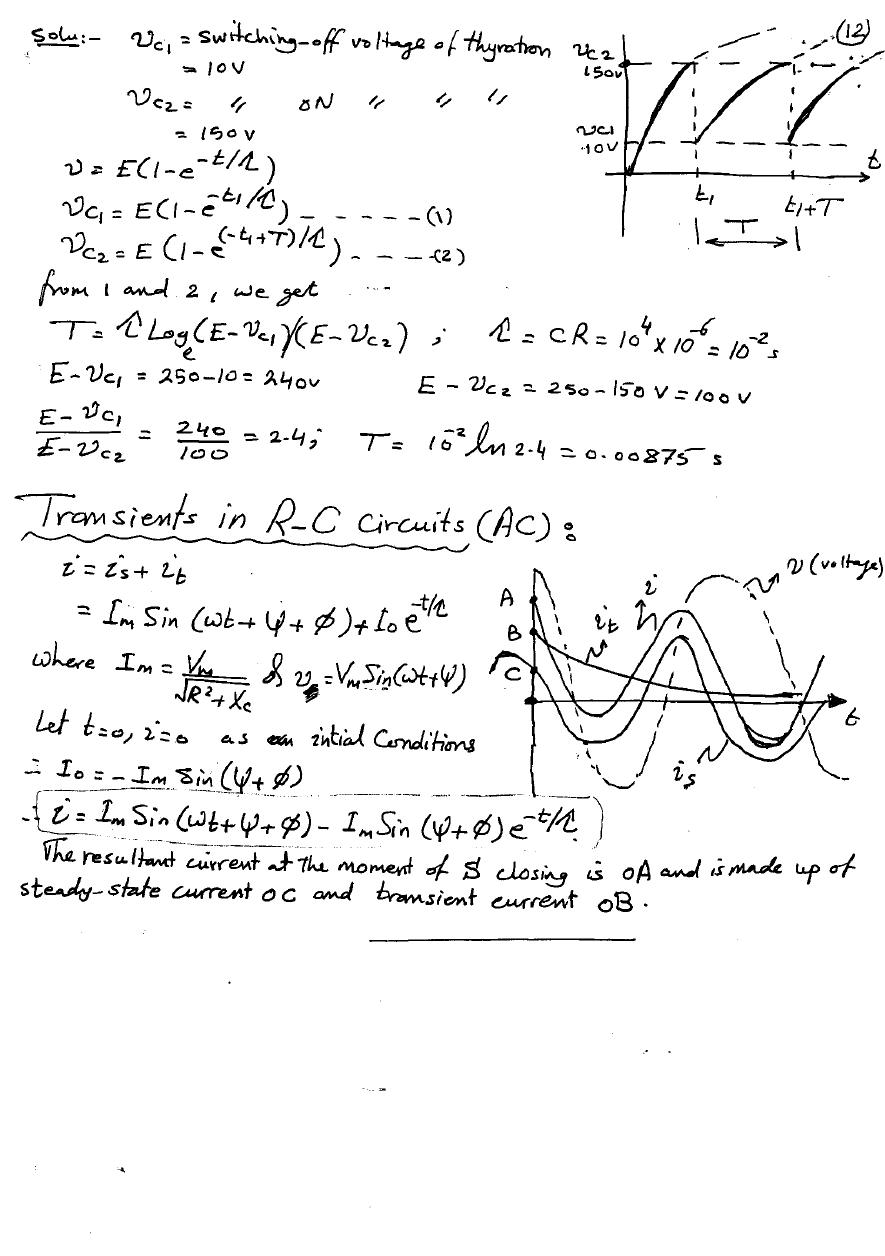 (12)
Solu:- v_C1 = switching-off voltage of thyration
= 10V
v_C2 = 〃 ON 〃 〃 〃
= 150 V
v = E(1-e^{-t/τ})
v_C1 = E(1-e^{-t1/τ}) - - - - - - (1)
v_C2 = E (1-e^{(-t1+T)/τ}) - - - - (2)
v_C2
150V
v_C1
10V
t
t1
t1+T
T
from 1 and 2, we get
T = τ Log_e (E-v_C1)/(E-v_C2) ; τ = CR = 10^4 × 10^-6 = 10^-2 s
E-v_C1 = 250-10 = 240V E - v_C2 = 250-150 V = 100 V
(E-v_C1)/(E-v_C2) = 240/100 = 2.4; T = 10^-2 ln 2.4 = 0.00875 s
Transients in R-C Circuits (AC):
i = i_s + i_t
= I_m Sin (ωt + ψ + φ) + I_0 e^{-t/τ}
where I_m = V_m/√(R²+X_c) & v = V_m Sin(ωt+ψ)
Let t=0, i=0 as an intial Conditions
∴ I_0 = - I_m Sin (ψ+φ)
∴ i = I_m Sin (ωt+ψ+φ) - I_m Sin (ψ+φ) e^{-t/τ}
A
B
C
i_t
i
v (voltage)
t
i_s
The resultant current at the moment of S closing is OA and is made up of
steady-state current OC and transient current OB.